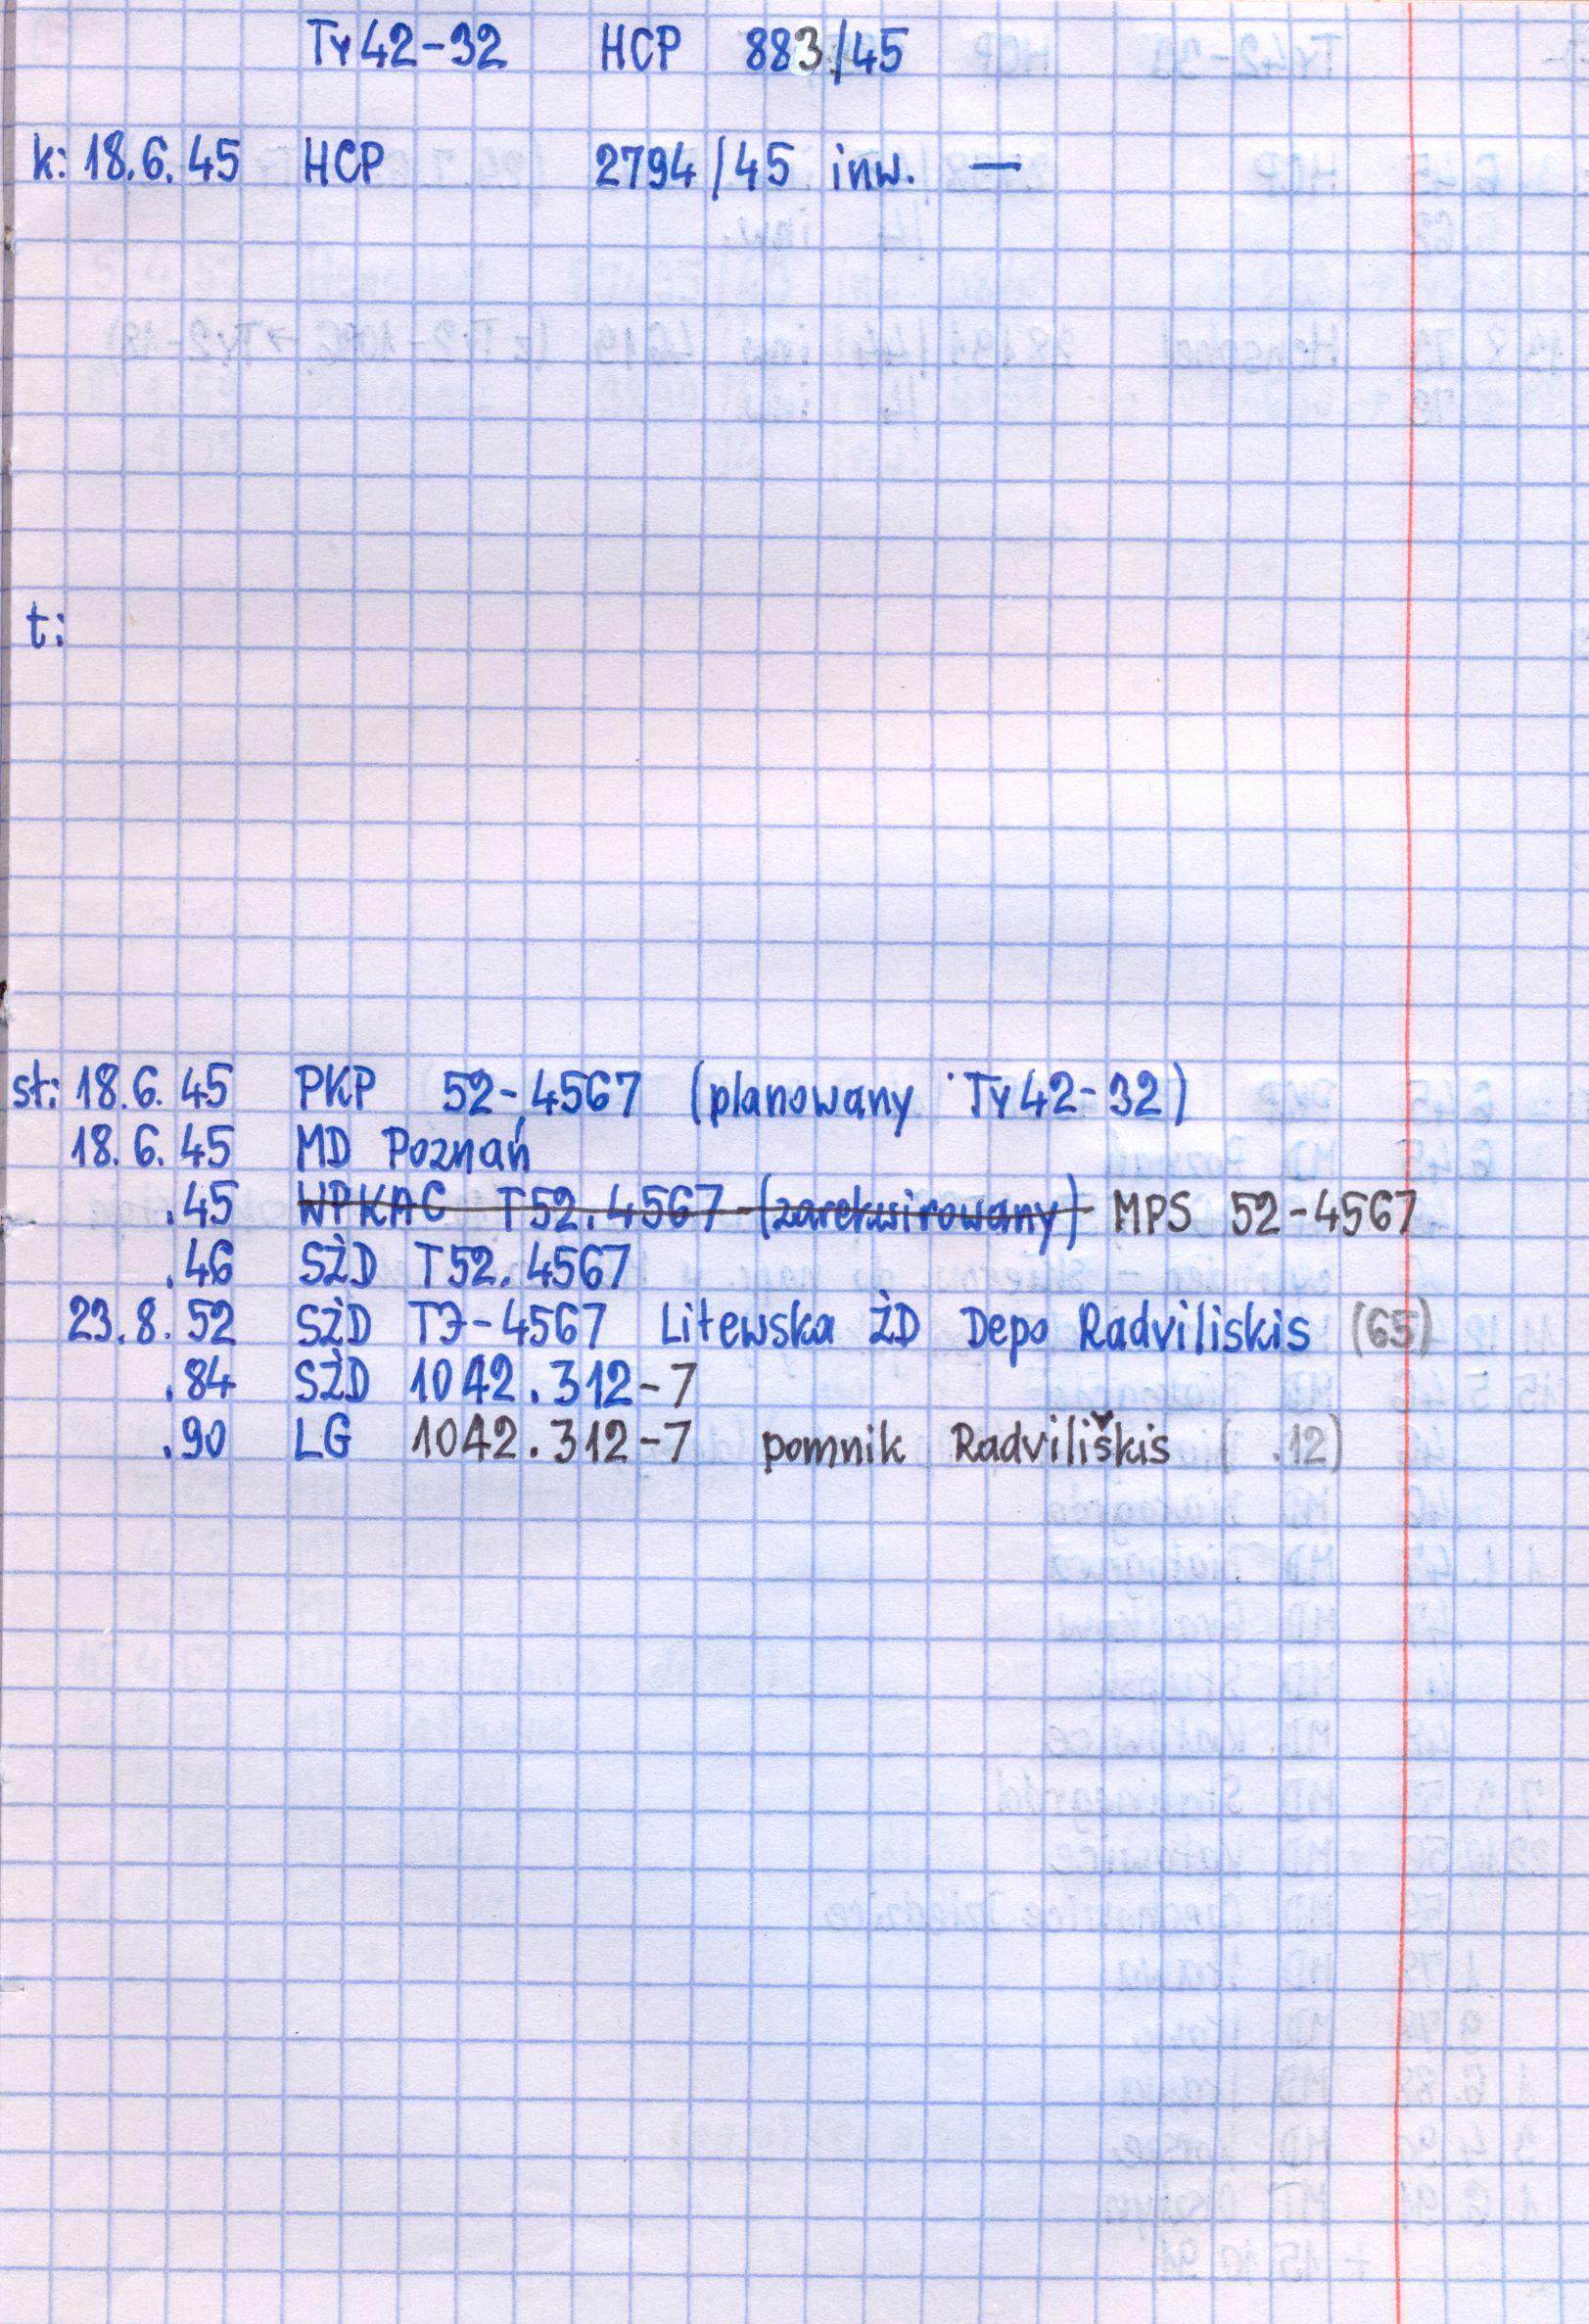 Ty42-32 HCP 883/45
k: 18.6.45 HCP 2794/45 inw. —
t:
st: 18.6.45 PKP 52-4567 (planowany Ty42-32)
18.6.45 MD Poznań
.45 WPKAC T52.4567 (zarekwirowany) MPS 52-4567
.46 SŻD T52.4567
23.8.52 SŻD TЭ-4567 Litewska ŻD Depo Radviliskis (65)
.84 SŻD 1042.312-7
.90 LG 1042.312-7 pomnik Radviliškis ( .12)